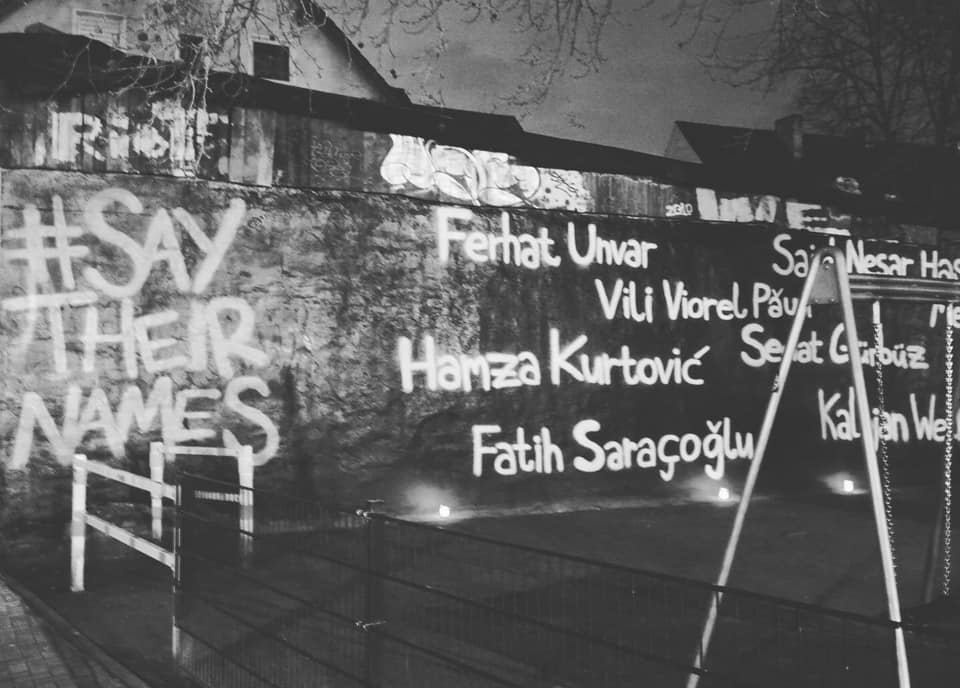 #SAY
THEIR
NAMES
Ferhat Unvar
Vili Viorel Pău
Hamza Kurtović
Fatih Saraçoğlu
Nesar Has
Gürbüz
We